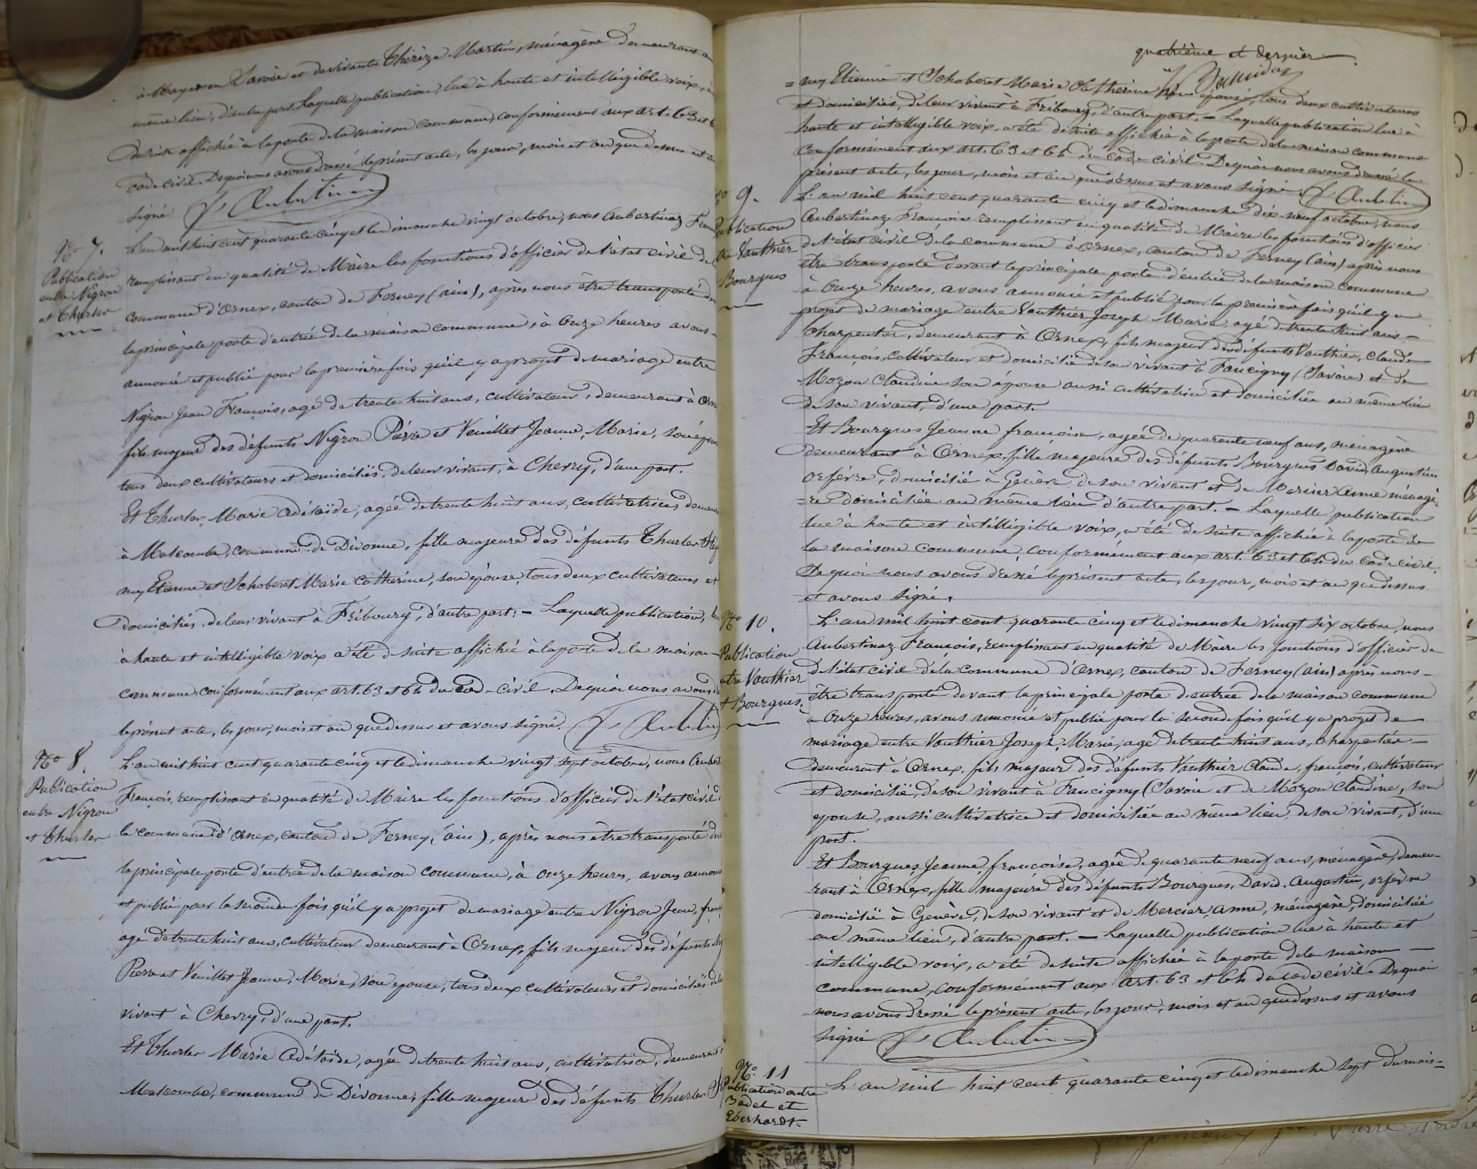 à Mayer en Savoie et de vivante Thérèze Martin, ménagère demeurant au
même lieu, d'autre part. Laquelle publication, lue à haute et intelligible voix, a
de suite affichée à la porte de la maison commune, conformément aux art. 63 et 6
code civil. De quoi nous avons dressé le présent acte, les jour, mois et an que dessus et a
signé F. Aubertin
No 7.
Publication
entre Nigron
et Thurler
L'an mil huit cent quarante cinq et le dimanche vingt octobre, nous Aubertinaz Fran
remplissant en qualité de Maire les fonctions d'officier de l'état civil de
commune d'Ornex, canton de Ferney (ain), après nous être transporté de
la principale porte d'entrée de la maison commune, à Onze heures avons
annoncé et publié pour la première fois qu'il y a projet de mariage entre
Nigron Jean François, agé de trente huit ans, cultivateur, demeurant à Orn
fils majeur des défunts Nigron Pierre et Veuillet Jeanne, Marie, son épou
tous deux cultivateurs et domiciliés, de leur vivant, à Chevry, d'une part.
Et Thurler, Marie Adélaïde, agée de trente huit ans, cultivatrice, demeu
à Malcombe, commune de Divonne, fille majeure des défunts Thurler
ny Etienne et Schoberet Marie Catherine, son épouse tous deux cultivateurs et
domiciliés de leur vivant à Fribourg, d'autre part: — Laquelle publication, l
à haute et intelligible voix a été de suite affiché à la porte de la maison
commune conformément aux art. 63 et 64 du Code civil. De quoi nous avons d
le présent acte, les jour, mois et an que dessus et avons signé. F. Aubertin
No 8.
Publication
entre Nigron
et Thurler
L'an mil huit cent quarante cinq et le dimanche vingt sept octobre, nous Aube
François, remplissant en qualité de Maire les fonctions d'officier de l'état civil d
la commune d'Ornex, canton de Ferney, (ain), après nous être transporté de
la principale porte d'entrée de la maison commune, à onze heures, avons annon
et publié pour la seconde fois qu'il y a projet de mariage entre Nigron Jean, fran
agé de trente huit ans, cultivateur demeurant à Ornex, fils majeur des défunts
Pierre et Veuillet Jeanne, Marie, son épouse, tous deux cultivateurs et domiciliés de
vivant à Chevry, d'une part.
Et Thurler Marie Adélaïde, agée de trente huit ans, cultivatrice, demeurant
Malcombe, commune de Divonne, fille majeure des défunts Thurler
quatrième et dernier
= ny Etienne et Schoberet Marie Catherine son épouse, tous deux cultivateurs
et Domiciliés, de leur vivant à Fribourg, d'autre part. — Laquelle publication lue à
haute et intelligible voix, a été de suite affichée à la porte de la maison commune
conformément aux art. 63 et 64 du code civil. De quoi nous avons dressé le
présent acte, les jour, mois et an que dessus et avons signé F. Aubertin
No 9.
Publication
entre Vauthier
Bourgus
L'an mil huit cent quarante cinq et le dimanche dix-neuf octobre, nous
Aubertinaz François remplissant en qualité de Maire les fonctions d'officier
de l'état civil de la commune d'Ornex, canton de Ferney (ain) après nous
être transporté devant la principale porte d'entrée de la maison commune
à Onze heures, avons annoncé et publié pour la première fois qu'il y a
projet de mariage entre Vauthier Joseph Marie, agé de trente huit ans —
Charpentier, demeurant à Ornex, fils majeur des défunts Vauthier, Claude
François, Cultivateur et domicilié de son vivant à Faucigny (Savoie) et de
Mozon Claudine son épouse aussi cultivatrice et domiciliée au même lieu
de son vivant, d'une part.
Et Bourgus Jeanne françoise, agée de quarante neuf ans, ménagère
demeurant à Ornex, fille majeure des défunts Bourgus David Augustin
orfévre, domicilié à Génève de son vivant et de Mercier Anne ménagè-
=re domiciliée au même lieu d'autre part. — Laquelle publication
lue à haute et intelligible voix, a été de suite affichée à la porte de
la maison commune, Conformément aux art. 63 et 64 du Code civil.
De quoi nous avons dressé le présent acte, les jour, mois et an que dessus
et avons signé.
No 10.
Publication
entre Vauthier
et Bourgues.
L'an mil huit cent quarante cinq et le dimanche vingt six octobre, nous
Aubertinaz François, remplissant en qualité de Maire les fonctions d'officier de
de l'état civil de la commune d'Ornex, canton de Ferney (ain) après nous —
être transporté devant la principale porte d'entrée de la maison commune
à Onze heures, avons annoncé et publié pour la seconde fois qu'il y a projet de
mariage entre Vauthier Joseph Marie, agé de trente huit ans, Charpentier —
demeurant à Ornex, fils majeur des défunts Vauthier Claude, françois, cultivateur
et domicilié, de son vivant à Faucigny (Savoie et de Mozon Claudine, son
épouse, aussi cultivatrice et domiciliée au même lieu, de son vivant, d'une
part.
Et Bourgues, Jeanne, françoise, agée de quarante neuf ans, ménagère, demeu-
rant à Ornex, fille majeure des défunts Bourgues, David. Augustin, orfèvre
domicilié à Genève, de son vivant et de Mercier, Anne, ménagère, domiciliée
au même lieu, d'autre part. — Laquelle publication lue à haute et
intelligible voix, a été de suite affichée à la porte de la maison —
commune, conformément aux art. 63 et 64 du code civil. De quoi
nous avons dressé le présent acte, les jour, mois et an que dessus et avons
signé F. Aubertin
No 11
Publication entre
Badel et
Eberhardt.
L'an mil huit cent quarante cinq et le dimanche sept du mois =